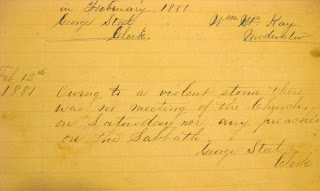 in February, 1881.
George Steel, Wm Mc Kay,
Clerk. Moderator
Feb 12th
1881 Owing to a violent storm there
was no meeting of the Church
on Saturday nor any preaching
on the Sabbath.
George Steel,
Clerk